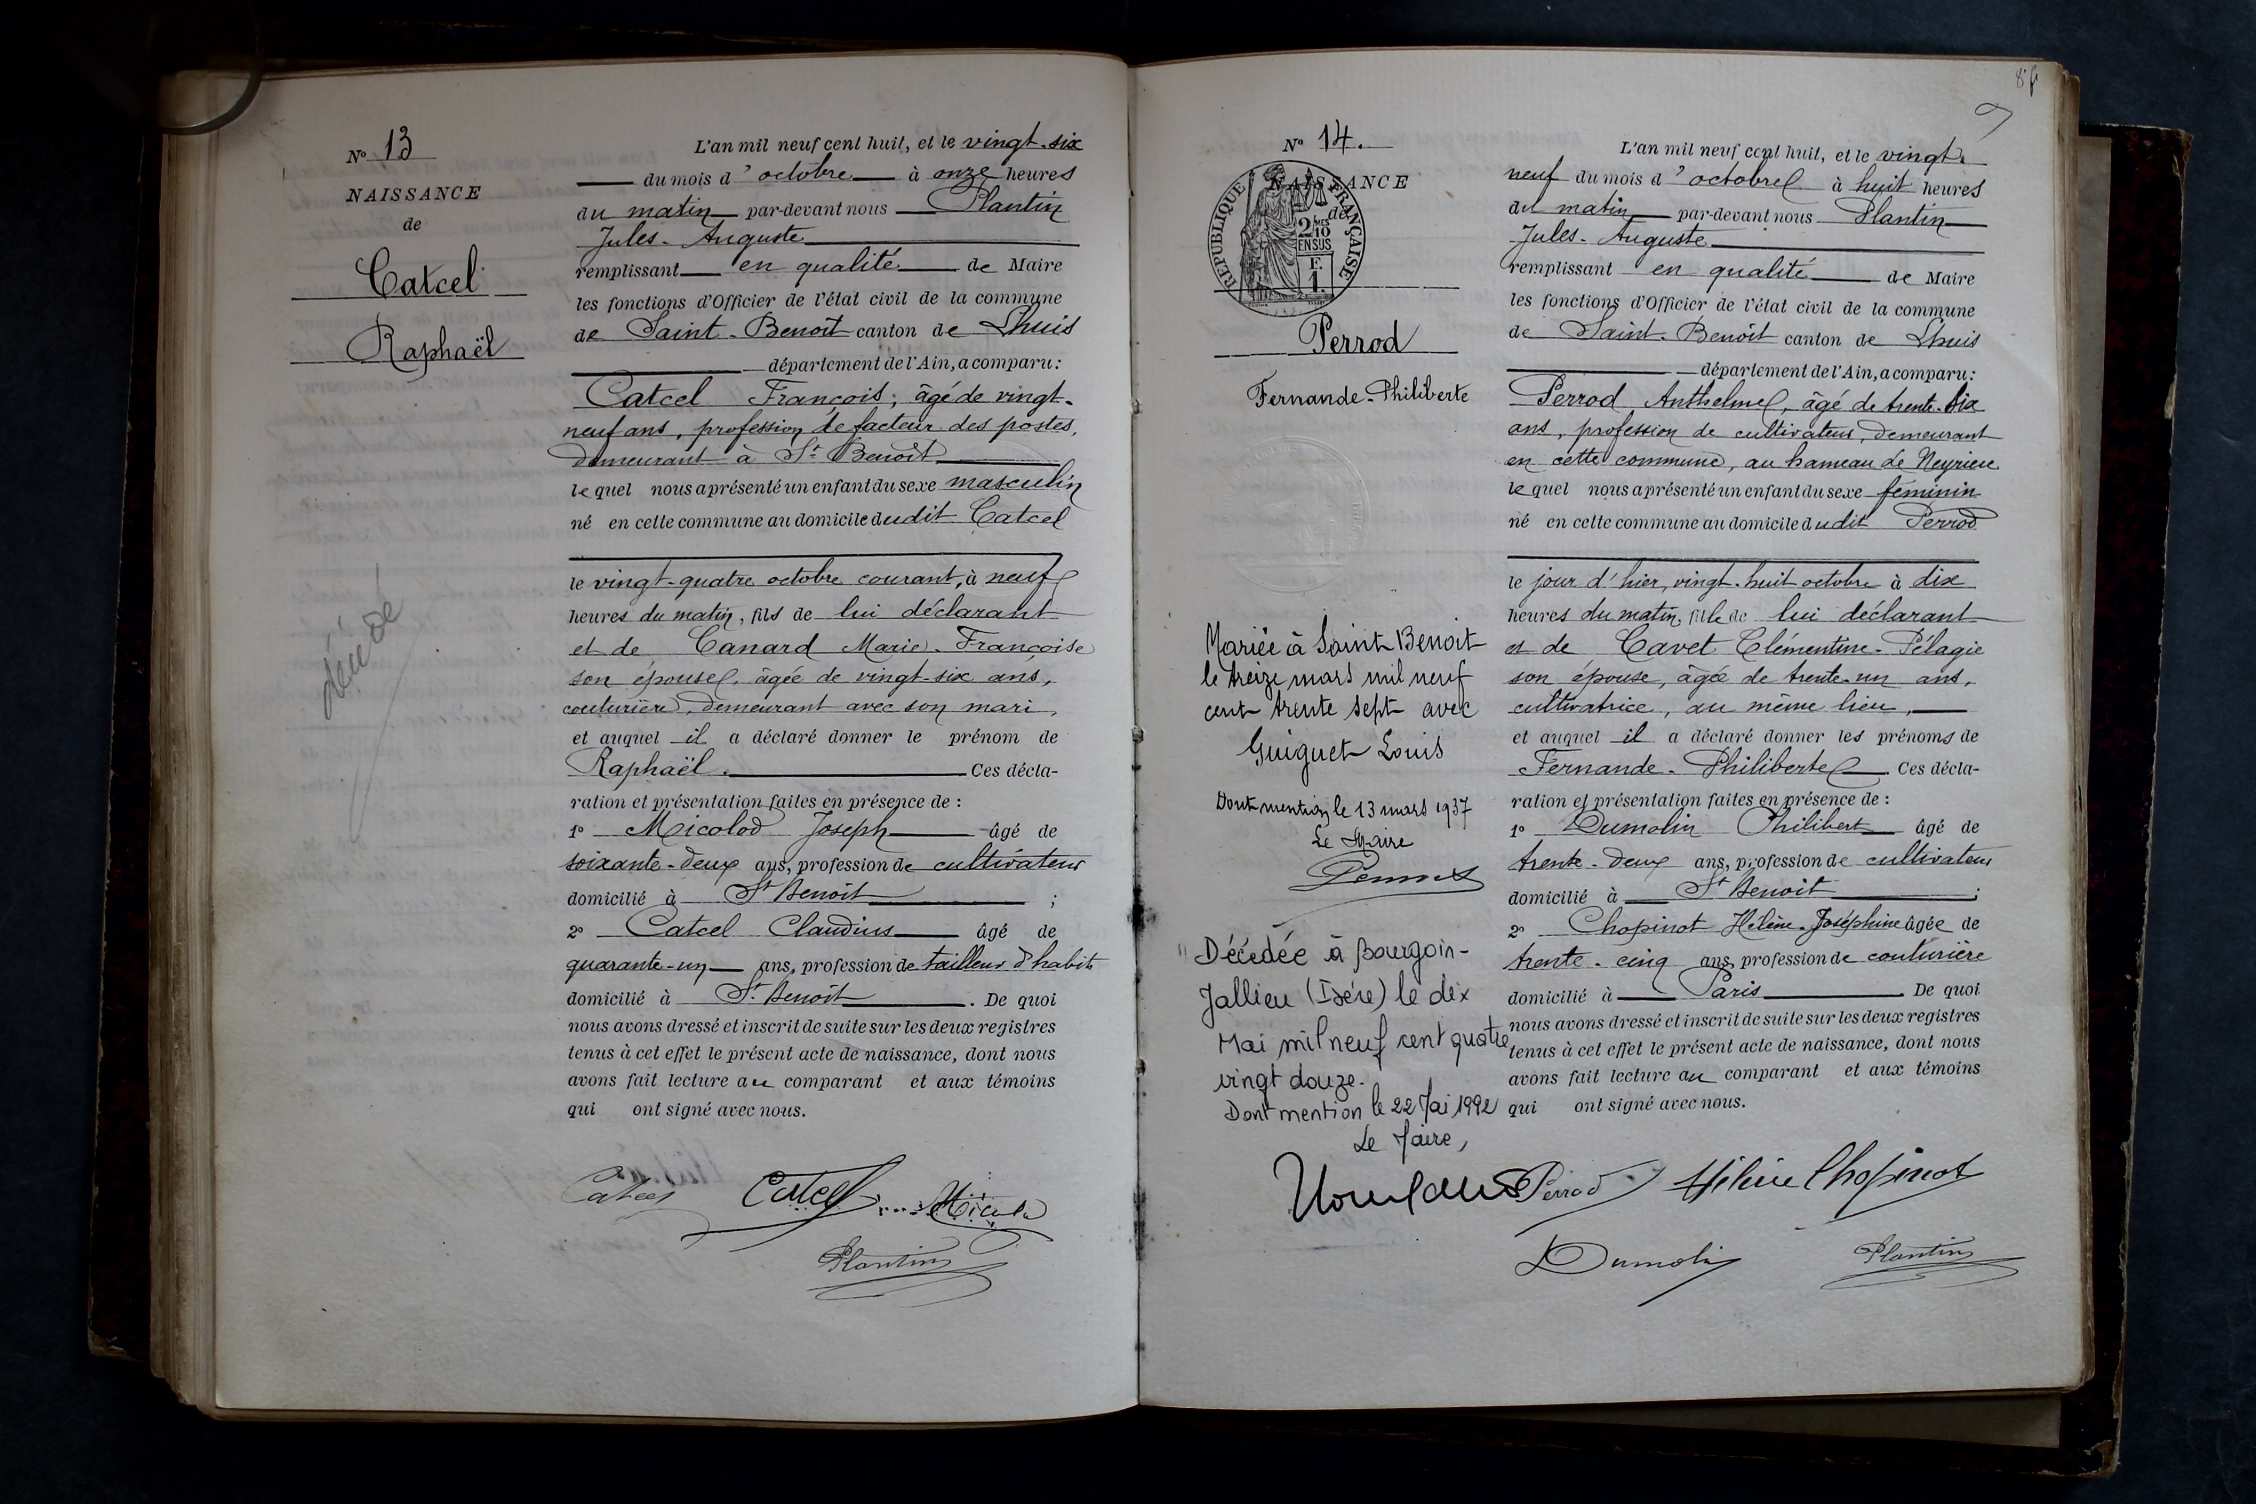 N° 13
NAISSANCE
de
Catcel
Raphaël
décédé
L'an mil neuf cent huit, et le vingt-six
du mois d'octobre à onze heures
du matin par-devant nous Plantin
Jules-Auguste
remplissant en qualité de Maire
les fonctions d'Officier de l'état civil de la commune
de Saint-Benoît canton de Lhuis
département de l'Ain, a comparu:
Catcel François, âgé de vingt-
neuf ans, profession de facteur des postes,
demeurant à St Benoît
lequel nous a présenté un enfant du sexe masculin
né en cette commune au domicile dudit Catcel
le vingt-quatre octobre courant, à neuf
heures du matin, fils de lui déclarant
et de Canard Marie-Françoise
son épouse, âgée de vingt-six ans,
couturière, demeurant avec son mari,
et auquel il a déclaré donner le prénom de
Raphaël. Ces décla-
ration et présentation faites en présence de :
1° Micolod Joseph âgé de
soixante-deux ans, profession de cultivateur
domicilié à St Benoît ;
2° Catcel Claudius âgé de
quarante-un ans, profession de tailleur d'habits
domicilié à St Benoît. De quoi
nous avons dressé et inscrit de suite sur les deux registres
tenus à cet effet le présent acte de naissance, dont nous
avons fait lecture au comparant et aux témoins
qui ont signé avec nous.
Catcel Catcel Micolod
Plantin
N° 14.
NAISSANCE
de
RÉPUBLIQUE FRANÇAISE
2/10
EN SUS
F.
1.
Perrod
Fernande-Philiberte
Mariée à Saint Benoit
le treize mars mil neuf
cent trente sept avec
Guiguet Louis
Dont mention le 13 mars 1937
Le Maire
Décédée à Bourgoin-
Jallieu (Isére) le dix
Mai mil neuf cent quatre
vingt douze.
Dont mention le 22 Mai 1992
Le Maire,
L'an mil neuf cent huit, et le vingt-
neuf du mois d'octobre à huit heures
du matin par-devant nous Plantin
Jules-Auguste
remplissant en qualité de Maire
les fonctions d'Officier de l'état civil de la commune
de Saint-Benoît canton de Lhuis
département de l'Ain, a comparu:
Perrod Anthelme, âgé de trente-six
ans, profession de cultivateur, demeurant
en cette commune, au hameau de Neyrieu
lequel nous a présenté un enfant du sexe féminin
né en cette commune au domicile dudit Perrod
le jour d'hier, vingt-huit octobre à dix
heures du matin, fille de lui déclarant
et de Cavet Clémentine-Pélagie
son épouse, âgée de trente-un ans,
cultivatrice, au même lieu,
et auquel il a déclaré donner les prénoms de
Fernande-Philiberte. Ces décla-
ration et présentation faites en présence de :
1° Dumolin Philibert âgé de
trente-deux ans, profession de cultivateur
domicilié à St Benoit ;
2° Chopinot Hélène-Joséphine âgée de
trente-cinq ans, profession de couturière
domicilié à Paris. De quoi
nous avons dressé et inscrit de suite sur les deux registres
tenus à cet effet le présent acte de naissance, dont nous
avons fait lecture au comparant et aux témoins
qui ont signé avec nous.
Perrod Hélène Chopinot
Dumolin Plantin